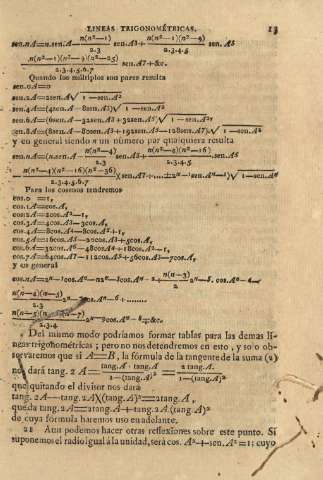 LINEAS TRIGONOMÉTRICAS. 13
sen.nA=n.sen.A- n(n²-1)/2.3 sen.A3+ n(n²-1)(n²-9)/2.3.4.5 sen.A5
- n(n²-1)(n²-9)(n²-25)/2.3.4.5.6.7 sen.A7+&c.
Quando los múltiplos son pares resulta
sen.0A=0
sen.2A=2sen.A√1-sen.A2
sen.4A=(4sen.A-8sen.A3)√1-sen.A2
sen.6A=(6sen.A-32sen.A3+32sen.A5)√1-sen.A2,
sen.8A=(8sen.A-80sen.A3+192sen.A5-128sen.A7)√1-sen.A2
y en general siendo n un número par qualquiera resulta
sen.nA=(n.sen.A- n(n²-4)/2.3 sen.A3+ n(n²-4)(n²-16)/2.3.4.5 sen.A5
- n(n²-4)(n²-16)(n²-36)/2.3.4.5.6.7
Para los cosenos tendremos
cos.0 =1,
cos.1A=cos.A,
cos.2A=2cos.A2-1,
cos.3A=4cos.A3-3cos.A,
cos.4A=8cos.A4-8cos.A2+1,
cos.5A=16cos.A5-20cos.A3+5cos.A,
cos.6A=32cos.A6-48cos.A4+18cos.A2-1,
cos.7A=64cos.A7-112cos.A5+56cos.A3-7cos.A,
y en general
n(n-3)/2
n(n-4)(n-5)/2.3
2.3.4
Del mismo modo podriamos formar tablas para las demas lí-
neas trigonométricas; pero no nos detendremos en esto, y solo ob-
servaremos que si A=B, la fórmula de la tangente de la suma (2)
nos dará tang. 2 A= tang.A+tang.A/1-(tang.A)² = 2 tang.A/1-(tang.A)²
que quitando el divisor nos dará
tang. 2A-tang.2A)(tang.A)²=2tang.A,
queda tang.2A=2tang.A+tang.2A(tang.A)²
de cuya fórmula haremos uso en adelante.
21 Aun podemos hacer otras reflexiones sobre este punto. Si
suponemos el radio igual á la unidad, será cos. A²+sen.A²=1; cuyo